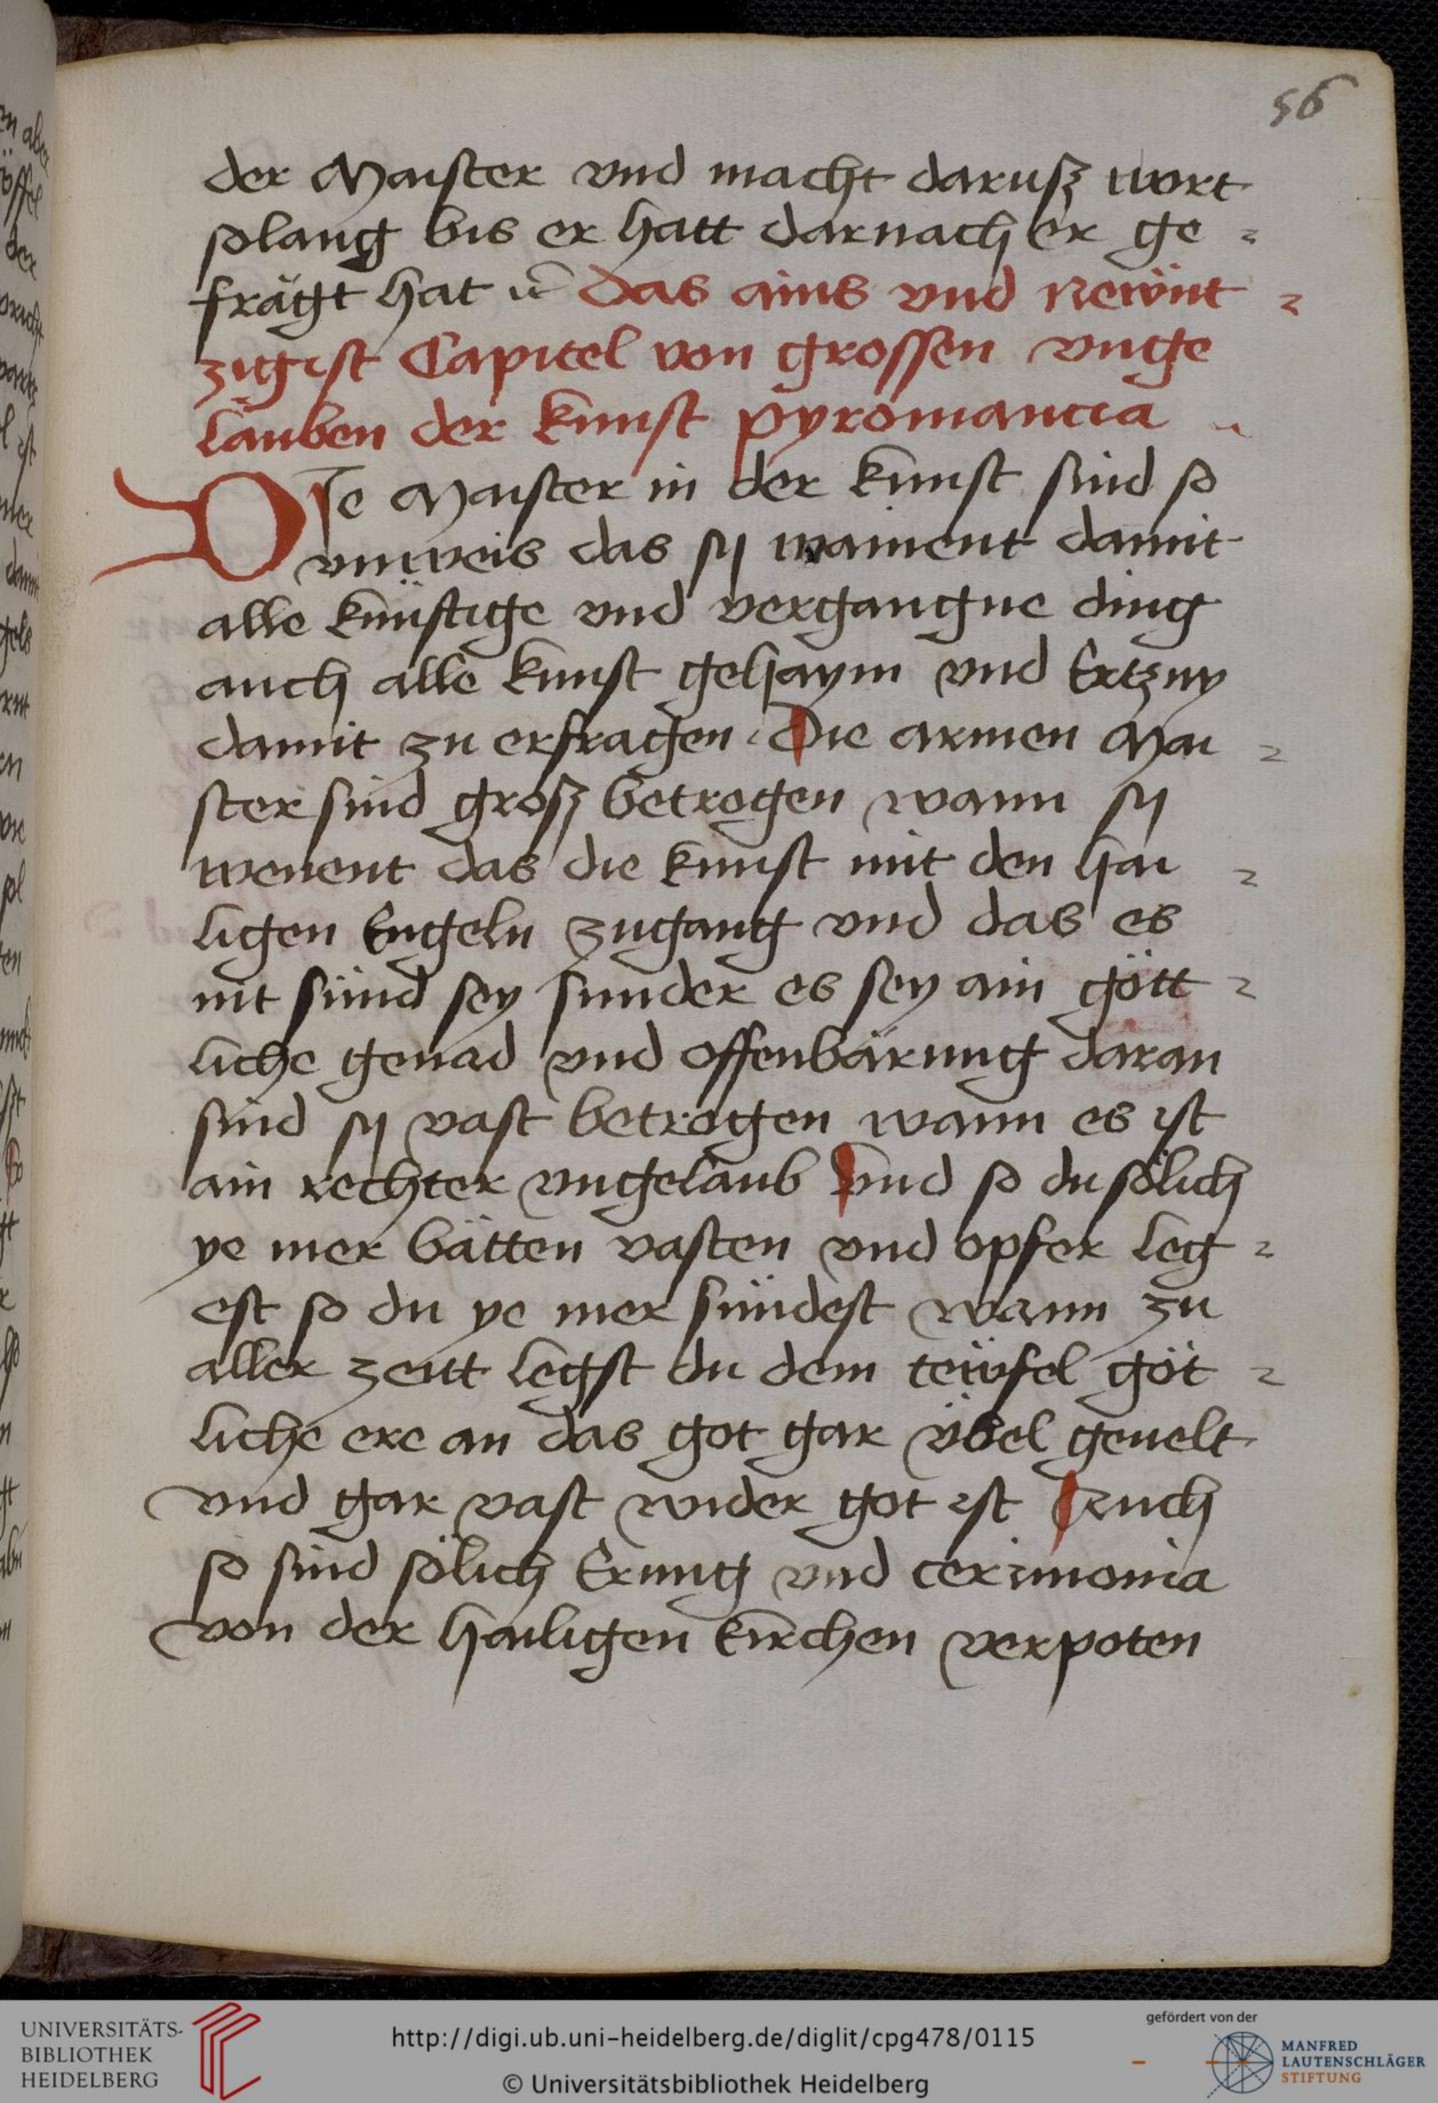 56
der Maister vnd macht darusz wort
solang bis er hatt darnach er ge
frägt hat das ains vnd Newnt
zigist Capitel von grossen vnge
lauben der kunst pyromancia
DIe Maister in der kunst sind so
vnweis das sy wainent damit
alle künftige vnd vergangne ding
auch alle kunst gehaym vnd Ertzny
damit zu erfragen Die armen Mai
ster sind grosz betrogen wann sy
wenent das die kunst mit den hai
ligen Engeln zugang vnd das es
nit sünd sey sunder es sey ain gött
liche genad vnd offenbärung daran
sind sy vast betrogen wann es ist
ain rechter vngelaub Vnd so du sölich
ye mer bätten vasten vnd opfer leg
est so du ye mer sündest wann zu
aller zeitt legst du dem tewfel göt
liche ere an das got gar übel geuelt
vnd gar vast wider got ist Auch
so sind sölich Erung vnd cerimonia
von der hailigen kirchen verpoten
UNIVERSITÄTS-
BIBLIOTHEK
HEIDELBERG
http://digi.ub.uni-heidelberg.de/diglit/cpg478/0115
© Universitätsbibliothek Heidelberg
gefördert von der
MANFRED
LAUTENSCHLÄGER
STIFTUNG